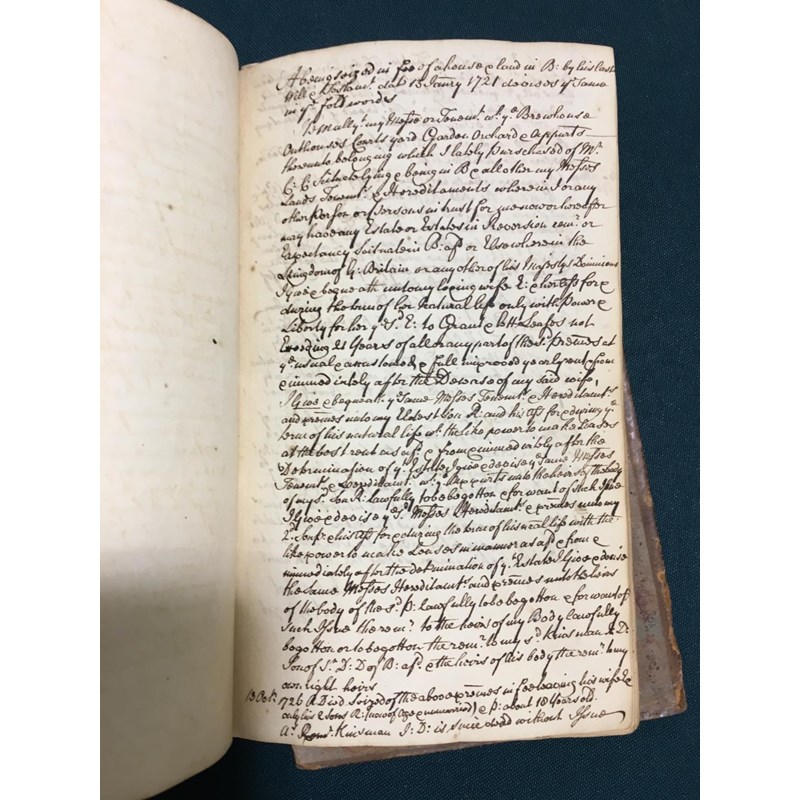 A being seized in Fee of a house & land in B: by his last
Will & Testamt. dat 15 Janry 1721 devises ye Same
in ye. foll words
my Messe or Tenemt. wt. ye Brewhouse
Outhouses Courts yard Garden Orchard & Appurts
thereunto belonging which I lately purchased of Mr.
C: C Situate lying & being in B & all other my Messes
Lands Tenemts. & Hereditaments wherein I or any
other person or persons in trust for me now or hereafter
may have any Estate or Estates in Reversion remr. or
Expectancy Situate in B: afd or Elsewhere in the
Kingdom of G: Britain or any other of his Majestys Dominions
I give & bequeath unto my loving wife E: & her ass for &
during the term of her Natural life only with Power &
Liberty for her ye. Sd. E: to Grant & lett Leases not
Exceeding 21 Years of all or any part of the sd. premes at
ye usual accustomed & full improved yearly rent & from
& immediately after the Decease of my said wife,
I Give & bequeath ye Same Messes Tenemts. & Hereditamts.
and premes unto my Eldest Son R: and his ass for & during ye
term of his natural life wt. the like power to make Leases
at the best rent as afd. & from & immediately after the
Determination of yt. Estate I give & devise ye Same Messes
Tenemts. & Heredits wt. ye Appurts unto the heirs of the body
of my sd. Son R: lawfully to be begotten & for want of such Issue
I Give & devise ye sd. Messes Hereditamts. & premes unto my
2d. Son P: & his ass for & during the term of his nral life with the
like power to make Leases in manner as afd. & from &
immediately after the determination of yt. Estate I Give & devise
the same Messes Hereditamts. and premes unto the heirs
of the body of the sd. P: lawfully to be begotten & for want of
such Issue the remr. to the heirs of my Body lawfully
begotten or to be begotten the remr. to my sd. Kinsman I: D:
Son of Sr. D: D of B: afd. & the heirs of his body the remr. to my
own right heirs
13 Octr. 1726 A Died seized of the above premes in Fee leaving his wife E &
only his 2 Sons R: (now of Age & unmarried) & P: about 18 Years old.
As. Remr. Kinsman I: D: is since dead without Issue